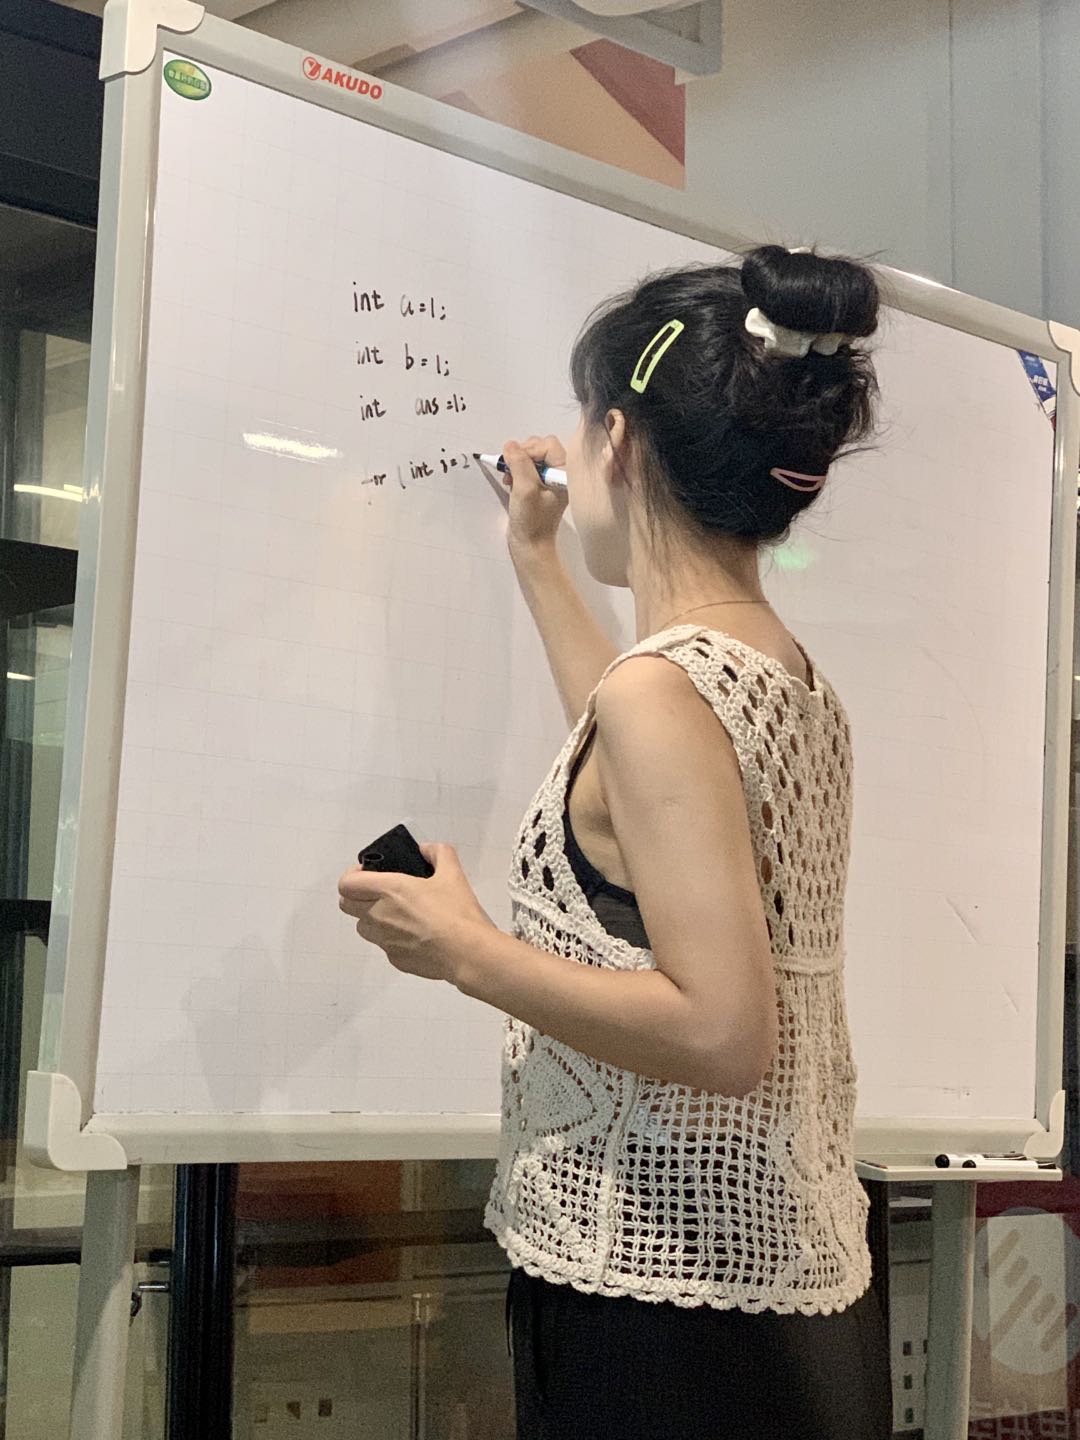 AKUDO
int a=1;
int b=1;
int ans=1;
for (int i=2